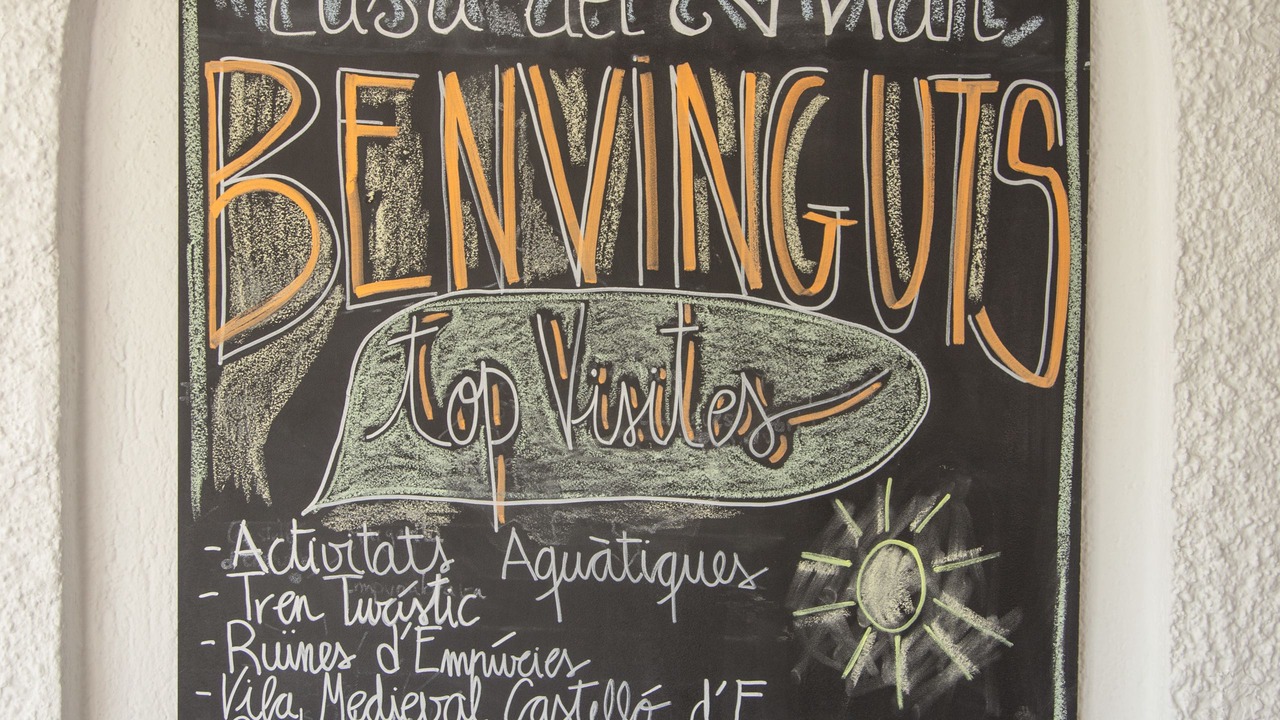 Casa del Mar
BENVINGUTS
top Visites
- Activitats Aquàtiques
- Tren Turístic
- Ruïnes d'Empúries
- Vila Medieval Castelló d'E